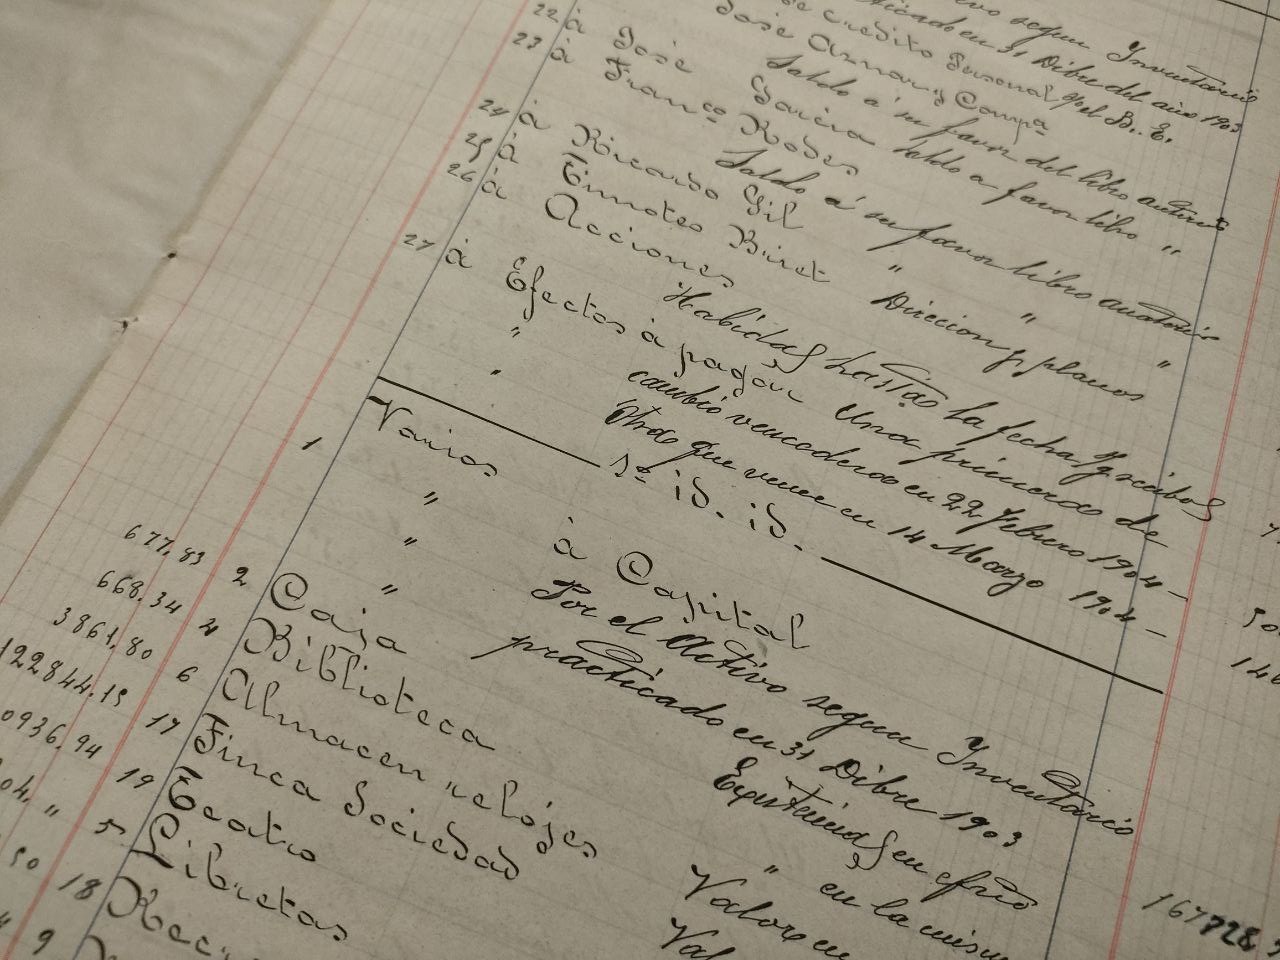 segun Inventario
en 31 Dibre del año 1903
de Credito Personal
José Arnau y Compª
Saldo á su favor del libro anterior
22 á José Garcia saldo a favor libro "
23 á Franco Rodes
Saldo á su favor libro anterior
24 á Ricardo Gil " " "
25 á Timoteo Biret Direccion y planos
26 á Acciones
Habidas hasta la fecha y recibos
27 á Efectos á pagar Una primera de
cambio vencedera en 22 febrero 1904 -
" Otra que vence en 14 Marzo 1904 -
" id. id.
1 Varios á Capital
" Por el Activo segun Inventario
" practicado en 31 Dibre 1903
677.83 2 Caja Existencias en efvo
668.34 4 Biblioteca " en la
3861.80 6 Almacen relojes Valores en
122844.15 17 Finca Sociedad
0936.94 19 Teatro
04. " 5 Libretas
50 18
9
167728